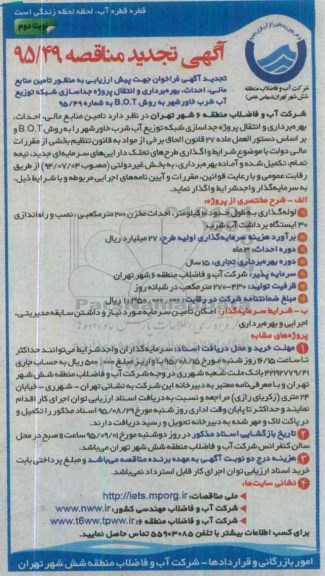 قطره قطره آب، لحظه لحظه زندگی است
نوبت دوم
آگهی تجدید مناقصه ۹۵/۴۹
شرکت آب و فاضلاب منطقه
شش شهر تهران (سهامی خاص)
تجدید آگهی فراخوان جهت پیش ارزیابی به منظور تامین منابع
مالی، احداث، بهره‌برداری و انتقال پروژه جداسازی شبکه توزیع
آب شرب خاورشهر به روش B.O.T به شماره ۹۵/۴۹
شرکت آب و فاضلاب منطقه ۶ شهر تهران در نظر دارد تامین منابع مالی، احداث،
بهره‌برداری و انتقال پروژه جداسازی شبکه توزیع آب شرب خاورشهر را به روش B.O.T و
بر اساس دستورالعمل ماده ۲۷ قانون الحاق برخی از مواد به قانون تنظیم بخشی از مقررات
مالی دولت با موضوع شرایط واگذاری طرح‌های تملک دارایی‌های سرمایه‌ای جدید، نیمه
تمام، تکمیل شده و آماده بهره‌برداری، به بخش غیردولتی (مصوب ۹۴/۰۷/۰۴) از طریق
رقابت عمومی و با رعایت قوانین، مقررات و آیین نامه‌های اجرایی مربوطه و با شرایط ذیل،
به سرمایه‌گذار واجد شرایط واگذار نماید.
الف - شرح مختصری از پروژه:
لوله‌گذاری به طول حدود ۱۰ کیلومتر، احداث مخزن ۲۰۰ مترمکعبی، نصب و راه‌اندازی
۳۰ ایستگاه برداشت آب شرب
برآورد هزینه سرمایه‌گذاری اولیه طرح: ۲۷ میلیارد ریال
دوره احداث: ۳ ماه
دوره بهره‌برداری تجاری: ۱۵ سال
سرمایه پذیر: شرکت آب و فاضلاب منطقه ۶ شهر تهران
ظرفیت تولید: ۲۷۰-۴۳۰ مترمکعب در شبانه روز
مبلغ ضمانتنامه شرکت در رقابت: ۱،۳۵۰،۰۰۰،۰۰۰ ریال
ب - شرایط سرمایه‌گذار: امکان تأمین سرمایه مورد نیاز و داشتن سابقه مدیریتی،
اجرایی و بهره‌برداری
پروژه‌های مشابه
۱ مهلت خرید و محل دریافت اسناد: سرمایه‌گذاران واجد شرایط می‌توانند حداکثر
تا ساعت ۱۴/۱۵ روز شنبه مورخ ۹۵/۰۸/۱۵ با واریز مبلغ ۵۰۰،۰۰۰ ریال به حساب جاری
بانک ملت شعبه شهرری در وجه شرکت آب و فاضلاب منطقه شش شهر
تهران و با معرفی‌نامه معتبر به دبیرخانه این شرکت به نشانی تهران - شهرری - خیابان
۲۴ متری (زکریای رازی) مراجعه و نسبت به دریافت اسناد ارزیابی توان اجرای کار اقدام
نمایند و حداکثر تا پایان وقت اداری روز شنبه مورخ ۹۵/۰۸/۲۹ اسناد مذکور را تکمیل و
در پاکت لاک و مهر شده به دبیرخانه تحویل و رسید دریافت دارند.
۲ تاریخ بازگشایی اسناد مذکور در روز دوشنبه مورخ ۹۵/۰۹/۰۱ ساعت ۸ صبح در محل
سالن کنفرانس شرکت آب و فاضلاب منطقه شش شهر تهران می‌باشد.
۳ هزینه درج دو نوبت آگهی به عهده برنده مناقصه می‌باشد و مبلغ پرداختی بابت
خرید اسناد ارزیابی توان اجرای کار قابل استرداد نمی‌باشد.
۴ نشانی سایت‌ها:
ملی مناقصات: http://iets.mporg.ir
شرکت آب و فاضلاب مهندسی کشور: www.nww.ir
شرکت آب و فاضلاب منطقه ۶: www.t6ww.tpww.ir
برای کسب اطلاعات بیشتر با تلفن ۵۵۹۰۳۰۸۵ تماس حاصل نمایید.
امور بازرگانی و قراردادها - شرکت آب و فاضلاب منطقه شش شهر تهران